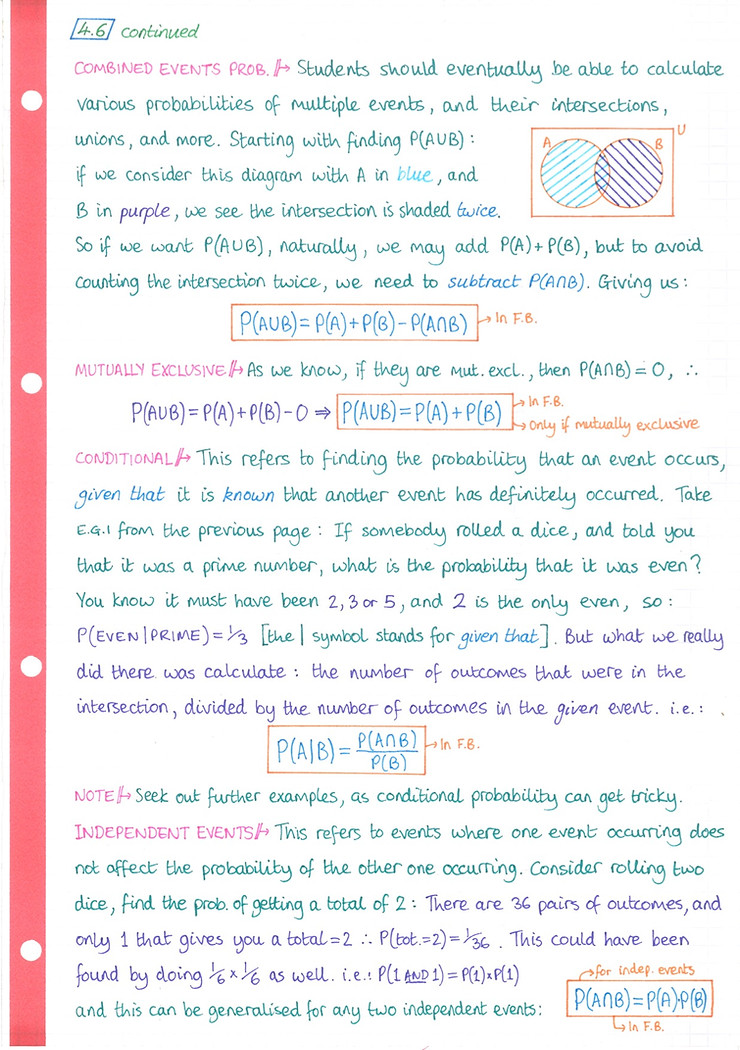 4.6 continued
COMBINED EVENTS PROB. Students should eventually be able to calculate
various probabilities of multiple events, and their intersections,
unions, and more. Starting with finding P(A∪B):
if we consider this diagram with A in blue, and
B in purple, we see the intersection is shaded twice.
A B U
So if we want P(A∪B), naturally, we may add P(A)+P(B), but to avoid
counting the intersection twice, we need to subtract P(A∩B). Giving us:
P(A∪B)=P(A)+P(B)-P(A∩B) → In F.B.
MUTUALLY EXCLUSIVE As we know, if they are mut. excl., then P(A∩B)=0, ∴
P(A∪B)=P(A)+P(B)-0 ⇒ P(A∪B)=P(A)+P(B) → In F.B.
→ Only if mutually exclusive
CONDITIONAL This refers to finding the probability that an event occurs,
given that it is known that another event has definitely occurred. Take
E.G.1 from the previous page: If somebody rolled a dice, and told you
that it was a prime number, what is the probability that it was even?
You know it must have been 2,3 or 5, and 2 is the only even, so:
P(EVEN|PRIME)=1/3 [the | symbol stands for given that]. But what we really
did there was calculate: the number of outcomes that were in the
intersection, divided by the number of outcomes in the given event. i.e.:
P(A|B)=P(A∩B)/P(B) → In F.B.
NOTE Seek out further examples, as conditional probability can get tricky.
INDEPENDENT EVENTS This refers to events where one event occurring does
not affect the probability of the other one occurring. Consider rolling two
dice, find the prob. of getting a total of 2: There are 36 pairs of outcomes, and
only 1 that gives you a total=2 ∴ P(tot.=2)=1/36. This could have been
found by doing 1/6 × 1/6 as well. i.e.: P(1 AND 1)=P(1)×P(1)
→ for indep. events
and this can be generalised for any two independent events: P(A∩B)=P(A)·P(B)
→ In F.B.